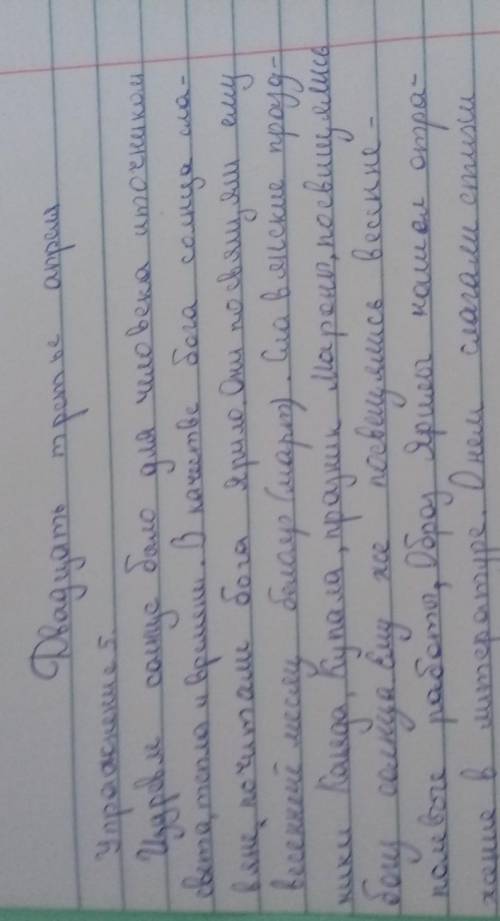 Двадцать третье апреля
Упражнение 5.
Издревле солнце было для человека источником
света, тепла и времени. В качестве бога солнца сла-
вяне почитали бога Ярило. Они посвящали ему
весенний месяц белояр (март). Славянские празд-
ники Коляда, Купала, праздник Мароны, посвищялись
богу солнца. Ему же посвещялись весенне-
полевые работы. Образ Ярилы нашел отра-
жание в литературе. О нем слагали стихи